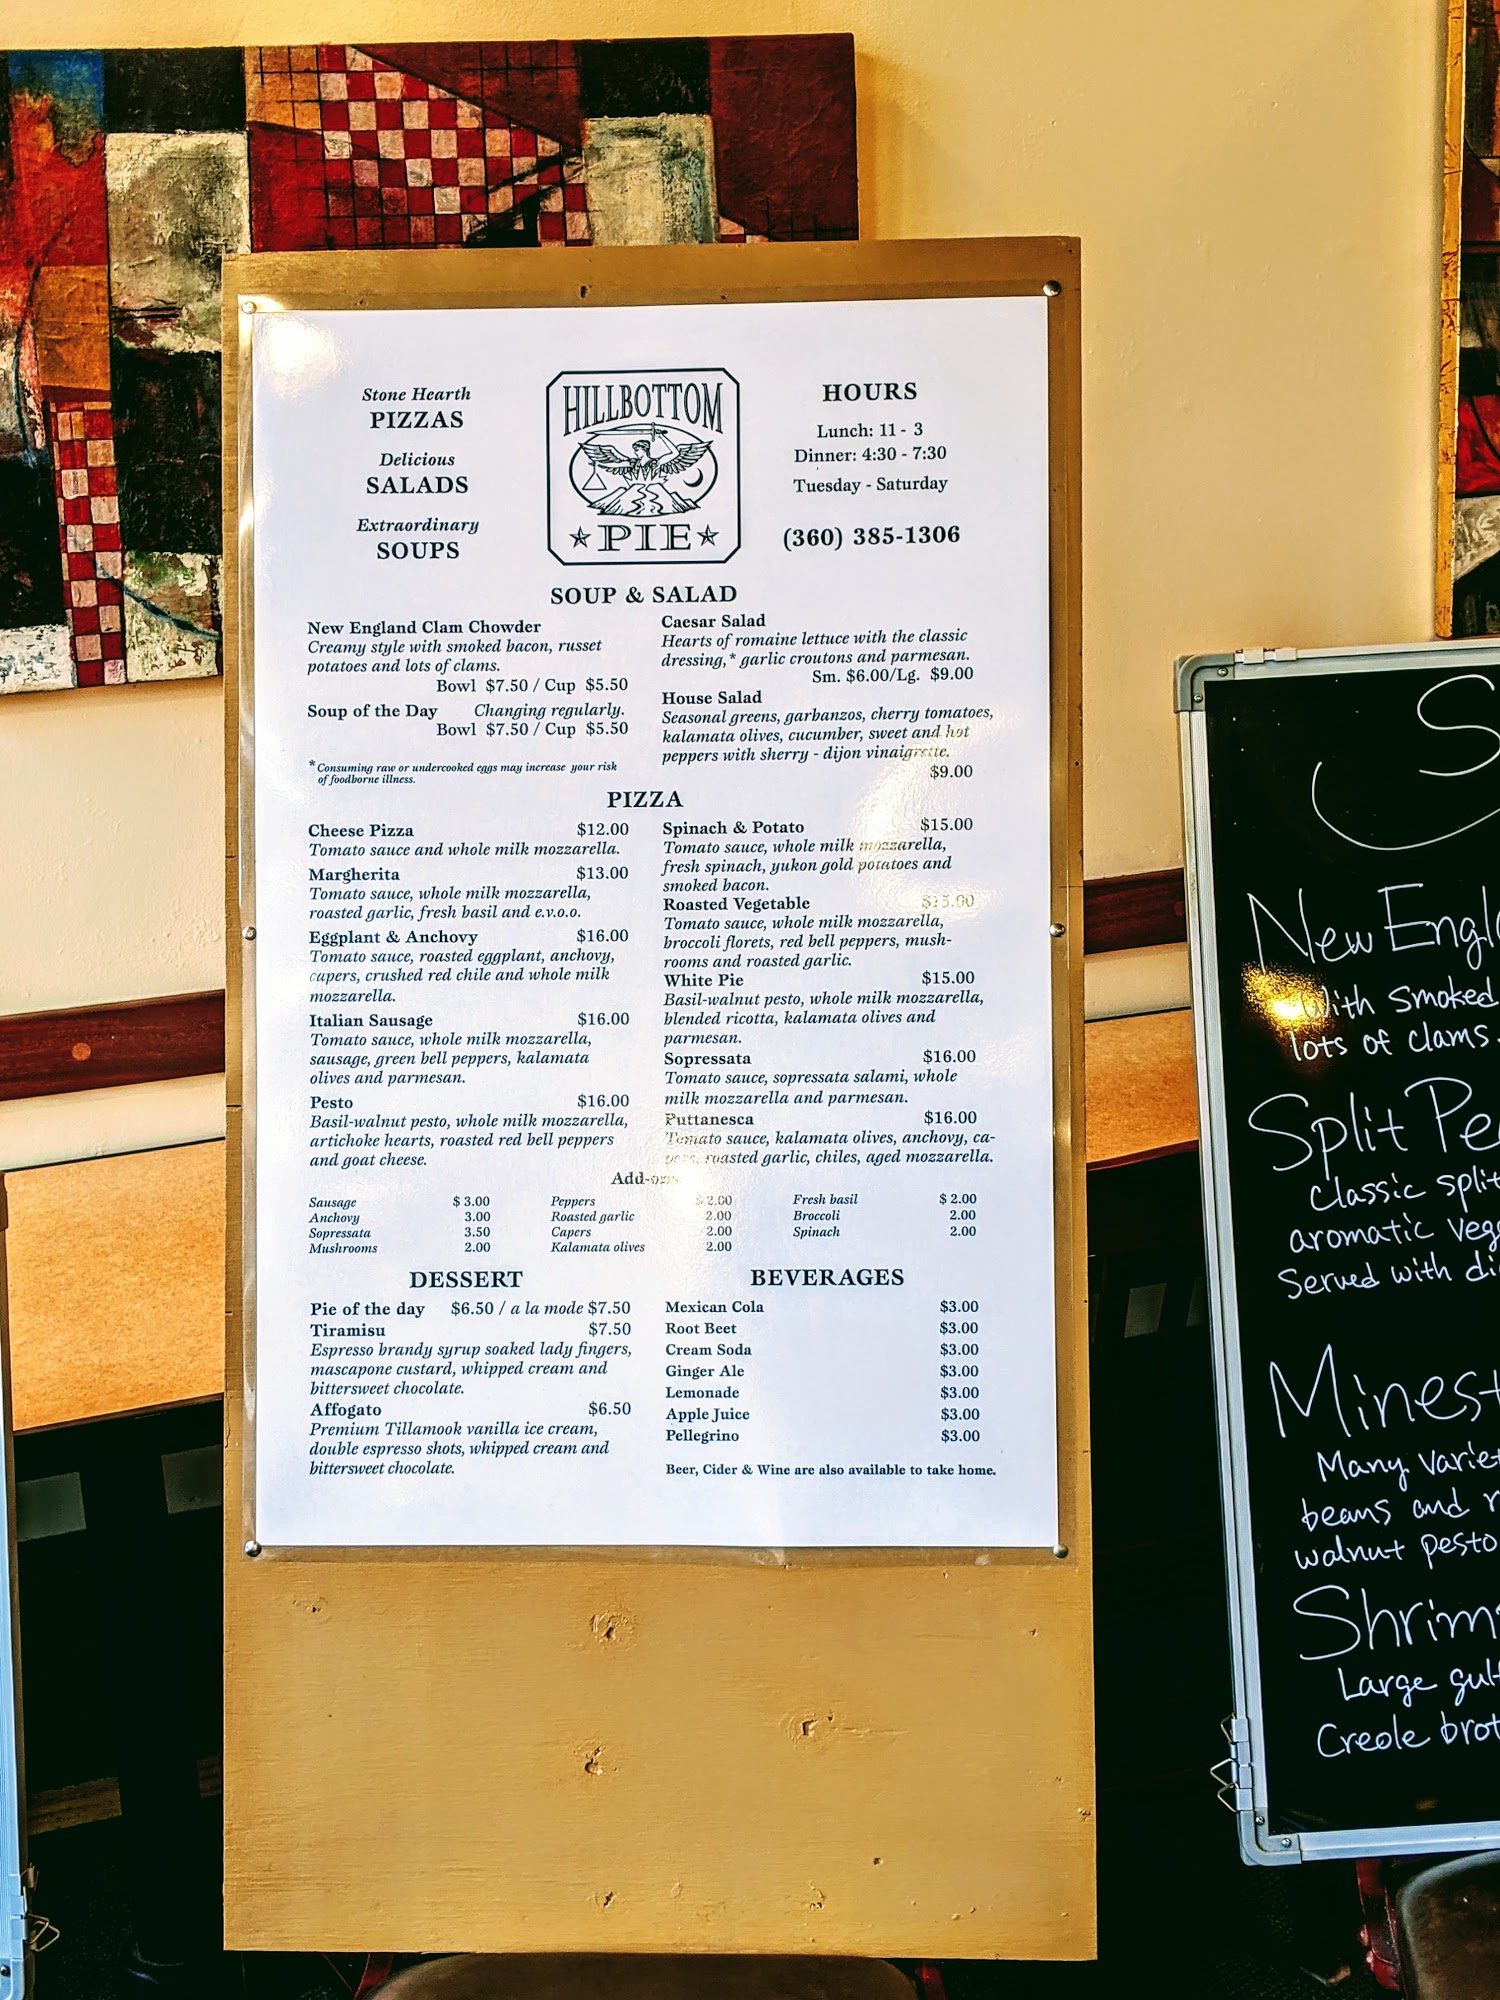 Stone Hearth
PIZZAS
Delicious
SALADS
Extraordinary
SOUPS
HILLBOTTOM
PIE
HOURS
Lunch: 11 - 3
Dinner: 4:30 - 7:30
Tuesday - Saturday
(360) 385-1306
SOUP & SALAD
New England Clam Chowder
Creamy style with smoked bacon, russet
potatoes and lots of clams.
Bowl $7.50 / Cup $5.50
Soup of the Day Changing regularly.
Bowl $7.50 / Cup $5.50
*Consuming raw or undercooked eggs may increase your risk
of foodborne illness.
Caesar Salad
Hearts of romaine lettuce with the classic
dressing,* garlic croutons and parmesan.
Sm. $6.00/Lg. $9.00
House Salad
Seasonal greens, garbanzos, cherry tomatoes,
kalamata olives, cucumber, sweet and hot
peppers with sherry - dijon vinaigrette.
$9.00
PIZZA
Cheese Pizza $12.00
Tomato sauce and whole milk mozzarella.
Margherita $13.00
Tomato sauce, whole milk mozzarella,
roasted garlic, fresh basil and e.v.o.o.
Eggplant & Anchovy $16.00
Tomato sauce, roasted eggplant, anchovy,
capers, crushed red chile and whole milk
mozzarella.
Italian Sausage $16.00
Tomato sauce, whole milk mozzarella,
sausage, green bell peppers, kalamata
olives and parmesan.
Pesto $16.00
Basil-walnut pesto, whole milk mozzarella,
artichoke hearts, roasted red bell peppers
and goat cheese.
Spinach & Potato $15.00
Tomato sauce, whole milk mozzarella,
fresh spinach, yukon gold potatoes and
smoked bacon.
Roasted Vegetable $15.00
Tomato sauce, whole milk mozzarella,
broccoli florets, red bell peppers, mush-
rooms and roasted garlic.
White Pie $15.00
Basil-walnut pesto, whole milk mozzarella,
blended ricotta, kalamata olives and
parmesan.
Sopressata $16.00
Tomato sauce, sopressata salami, whole
milk mozzarella and parmesan.
Puttanesca $16.00
Tomato sauce, kalamata olives, anchovy, ca-
pers, roasted garlic, chiles, aged mozzarella.
Add-ons
Sausage $ 3.00
Anchovy 3.00
Sopressata 3.50
Mushrooms 2.00
Peppers $ 2.00
Roasted garlic 2.00
Capers 2.00
Kalamata olives 2.00
Fresh basil $ 2.00
Broccoli 2.00
Spinach 2.00
DESSERT
Pie of the day $6.50 / a la mode $7.50
Tiramisu $7.50
Espresso brandy syrup soaked lady fingers,
mascapone custard, whipped cream and
bittersweet chocolate.
Affogato $6.50
Premium Tillamook vanilla ice cream,
double espresso shots, whipped cream and
bittersweet chocolate.
BEVERAGES
Mexican Cola $3.00
Root Beet $3.00
Cream Soda $3.00
Ginger Ale $3.00
Lemonade $3.00
Apple Juice $3.00
Pellegrino $3.00
Beer, Cider & Wine are also available to take home.
New
With smoked
lots of clams.
Split
classic split
aromatic
Served with
Many
beans and
walnut pesto
Large
Creole